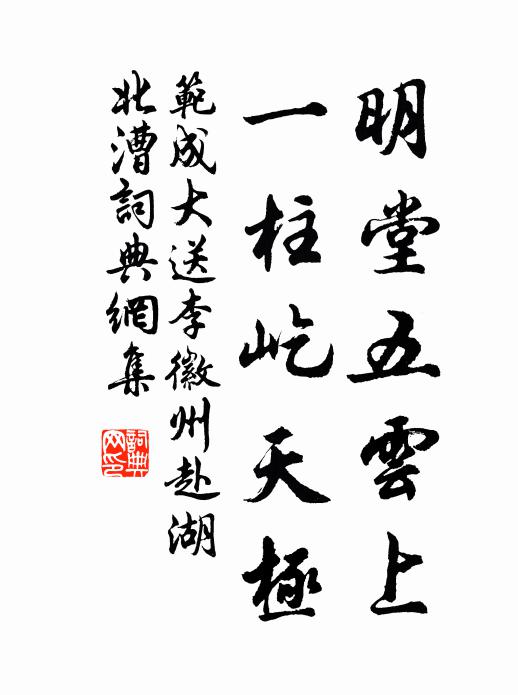 明堂五雲上
一柱屹天極
範成大送李徽州赴湖
北漕詞典網集
詞典
网印